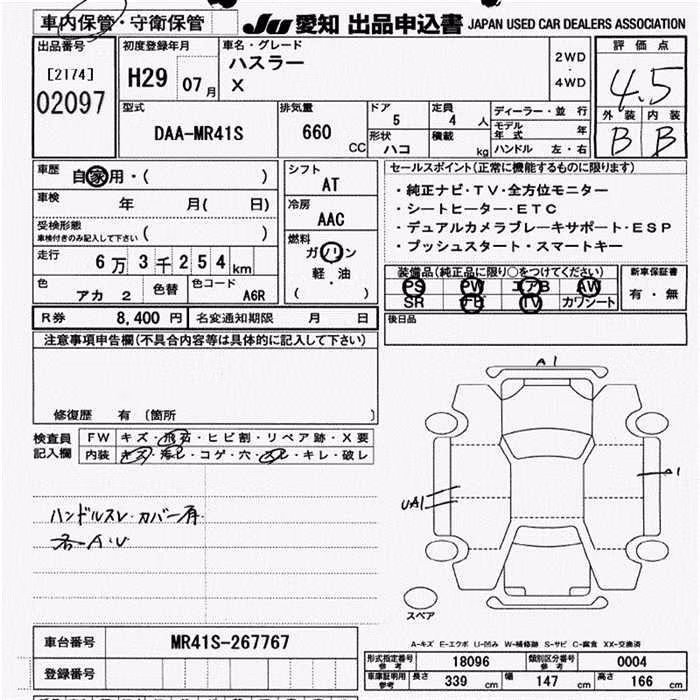 車内保管・守衛保管 JU 愛知 出品申込書 JAPAN USED CAR DEALERS ASSOCIATION
出品番号 初度登録年月 車名・グレード 評価点
[2174] H29 07月 ハスラー 2WD・4WD 4.5
02097 X 外装 内装
型式 排気量 ドア 5 定員 4人 ディーラー・並行 B B
DAA-MR41S 660 CC 形状 ハコ 積載 kg モデル年式 年
ハンドル 左・右
車歴 自家用・( ) シフト AT セールスポイント(正常に機能するものに限ります)
車検 年 月( 日) 冷房 AAC ・純正ナビ・TV・全方位モニター
・シートヒーター・ETC
受検形態 車検付きのみ記入して下さい ( ) ・デュアルカメラブレーキサポート・ESP
走行 6万3千254km 燃料 ガソリン ・プッシュスタート・スマートキー
軽・油
( )
色 アカ 2 色替 色コード A6R 装備品(純正品に限り○をつけてください) 新車保証書
PS PW エアB AW 有・無
SR ナビ TV カワシート
R券 8,400 円 名変通知期限 月 日 後日品
注意事項申告欄(不具合内容等は具体的に記入して下さい)
修復歴 有 (箇所 )
A1
検査員記入欄 FW キズ・飛石・ヒビ割・リペア跡・X要
内装 キズ・汚レ・コゲ・穴・スレ・キレ・破レ
A1
UA1
ハンドルスレ・カバー有
A・U
スペア
A-キズ E-エクボ U-凹み W-補修跡 S-サビ C-腐食 XX-交換済
車台番号 MR41S-267767
形式指定番号 参考 18096 類別区分番号 参考 0004
登録番号
車庫証明用 参考 長さ 339 cm 幅 147 cm 高さ 166 cm